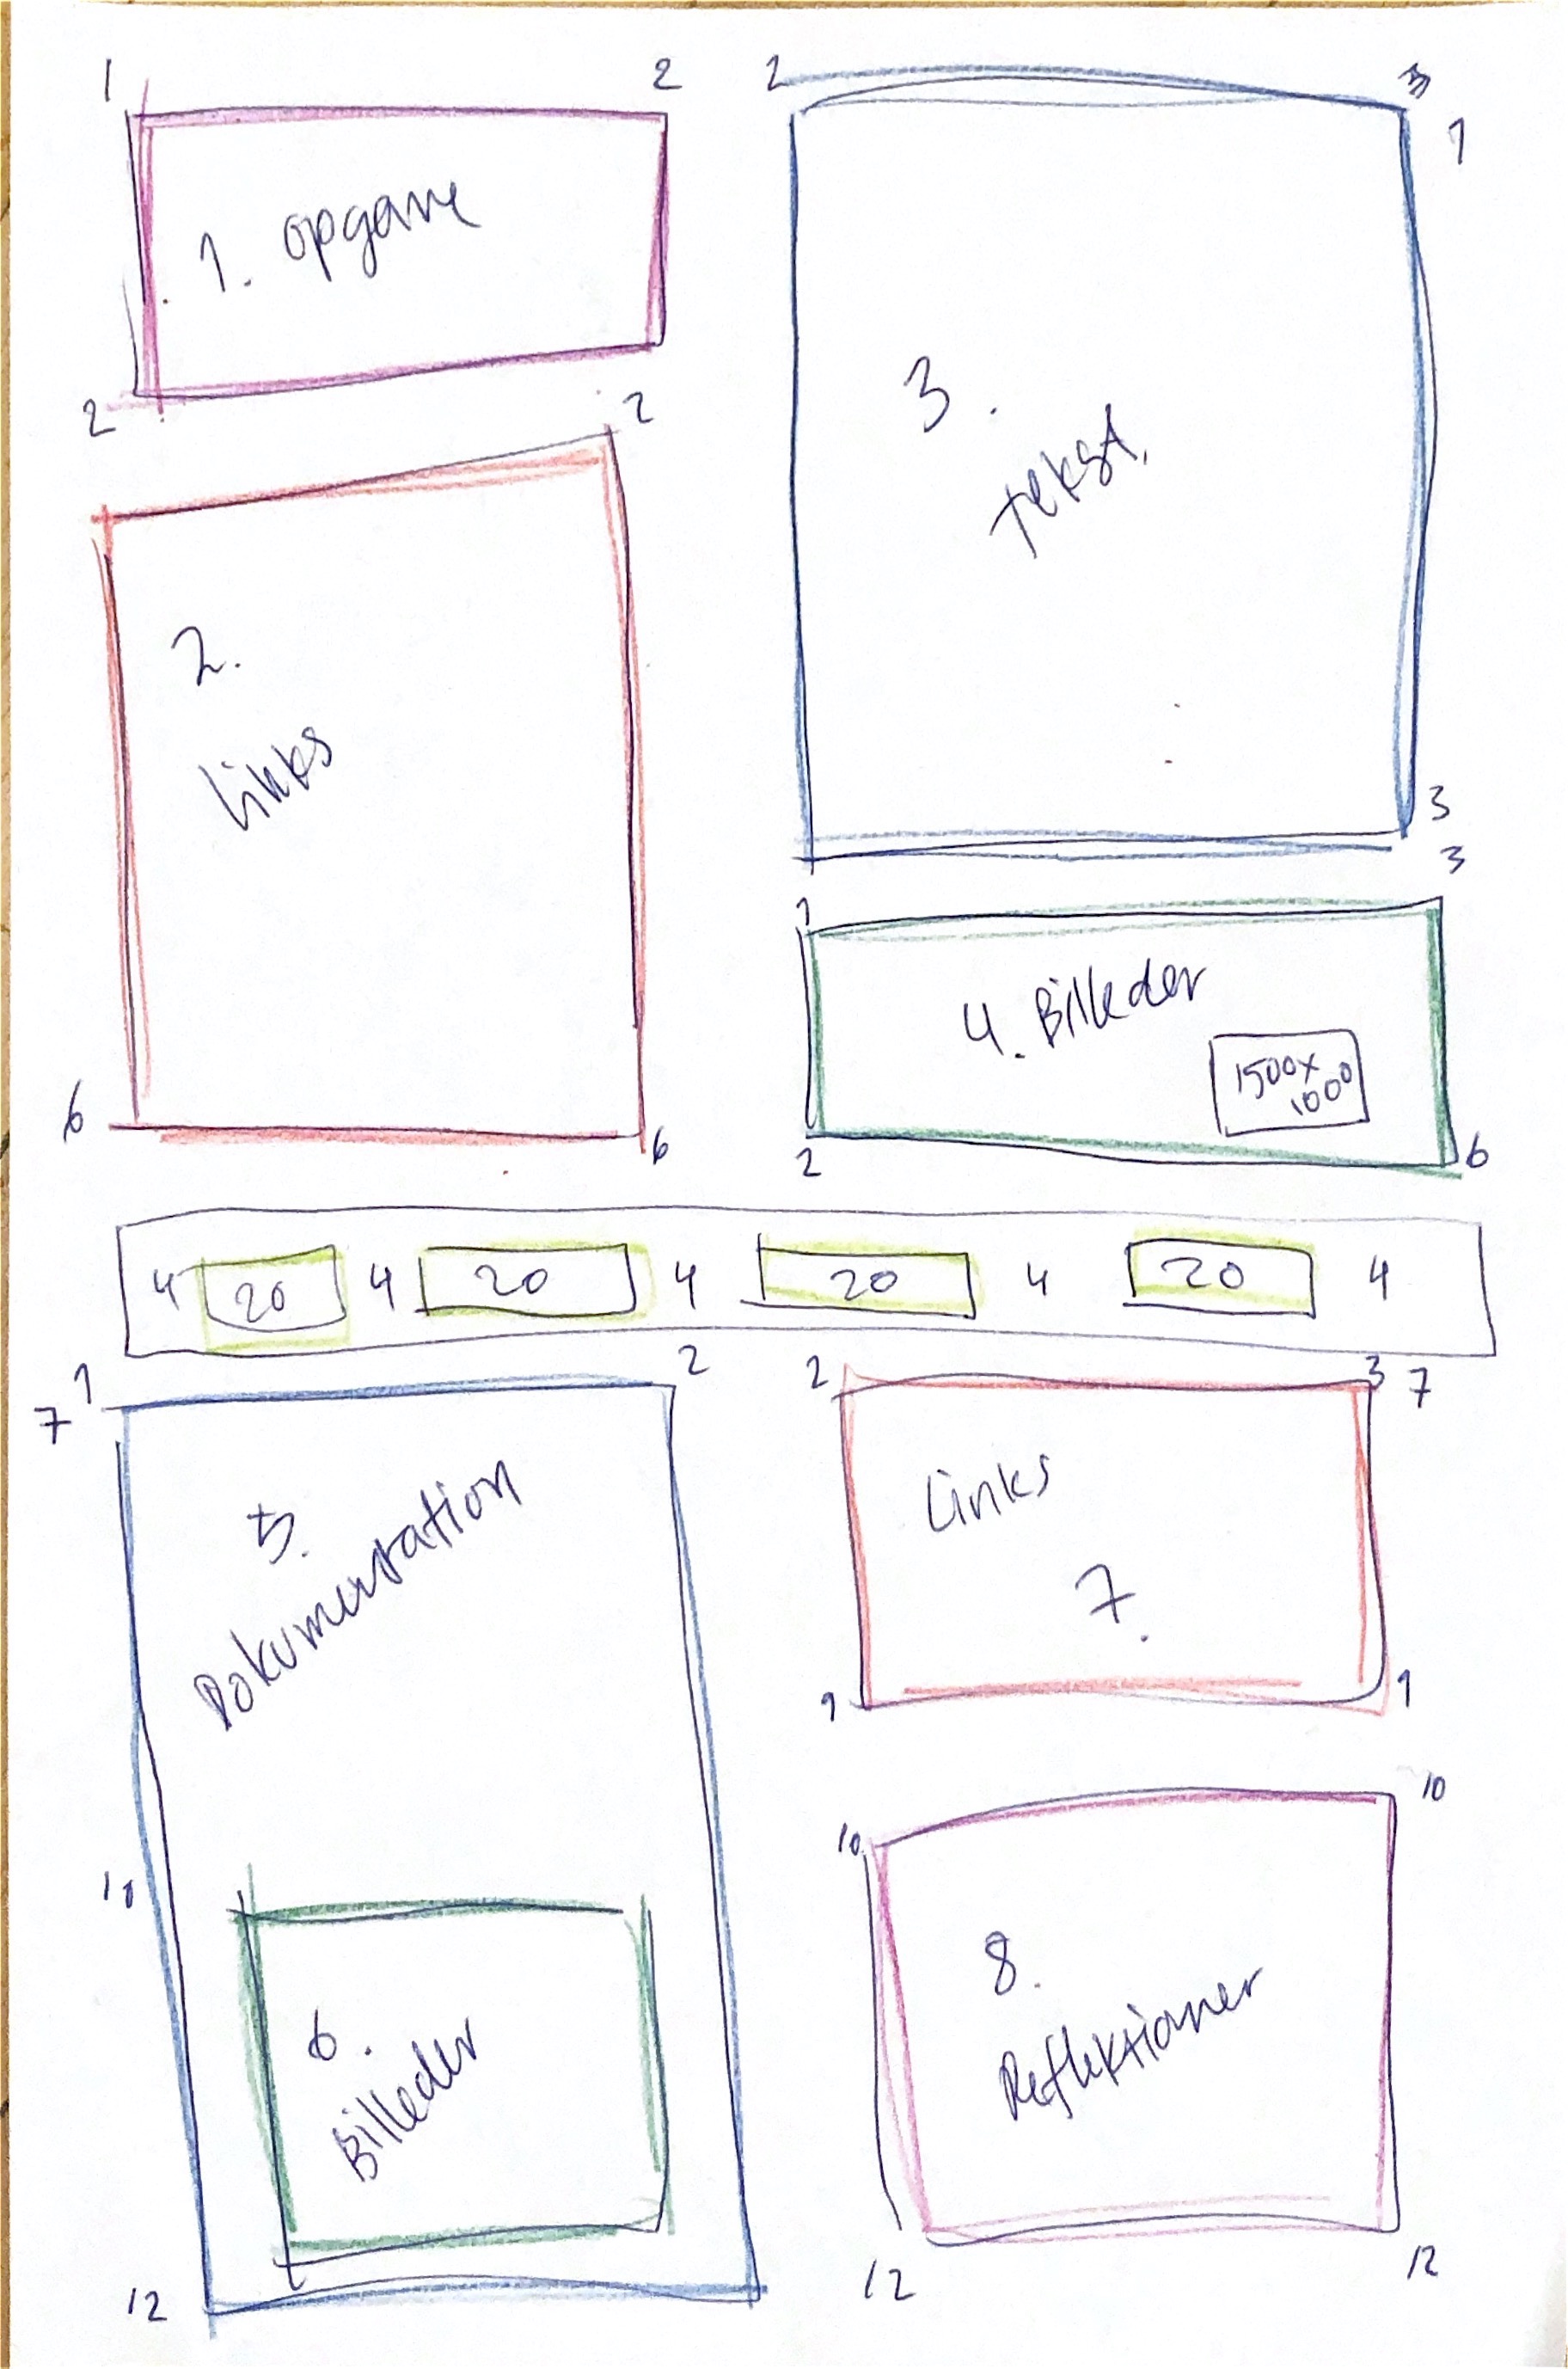 1 2
1. opgave
2 2
2.
Links
6 6
2 3
1
3.
Tekst.
3
3
4. Billeder
1500x
1000
2 6
4 20 4 20 4 20 4 20 4
1 2
7
5.
Dokumentation
10
6.
Billeder
12
2 3 7
Links
7.
9 9
10 10
8.
Reflektioner
12 12